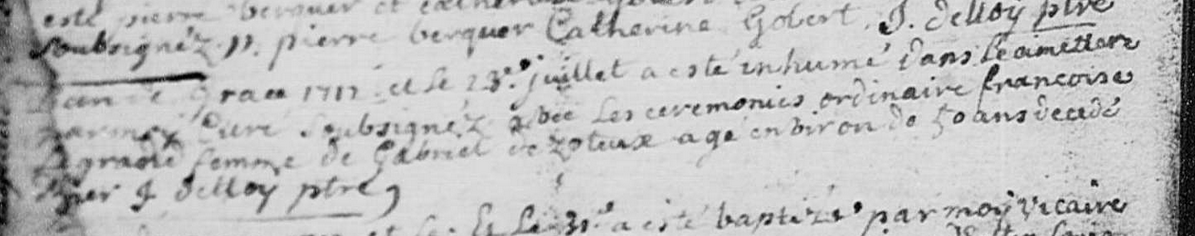 esté pierre berquer et
soubsignéz pierre berquer Catherine Gobert J. delloy ptre
Lan de grace 1712 et le 23e juillet a esté inhumé dans le cimettere
par moy Curé soubsignéz avec les ceremonies ordinaire francoise
legrand femme de Gabriel agé environ de 50 ans decedé
hier J delloy ptre
et le 31e a esté baptizé par moy vicaire